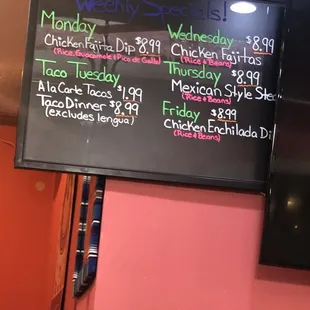 Weekly Specials!
Monday
Chicken Fajita Dip $8.99
(Rice, Guacamole & Pico de Gallo)
Taco Tuesday
A la Carte Tacos $1.99
Taco Dinner $8.99
(excludes lengua)
Wednesday $8.99
Chicken Fajitas
(Rice & Beans)
Thursday $8.99
Mexican Style Stea
(Rice & Beans)
Friday $8.99
Chicken Enchilada Di
(Rice & Beans)